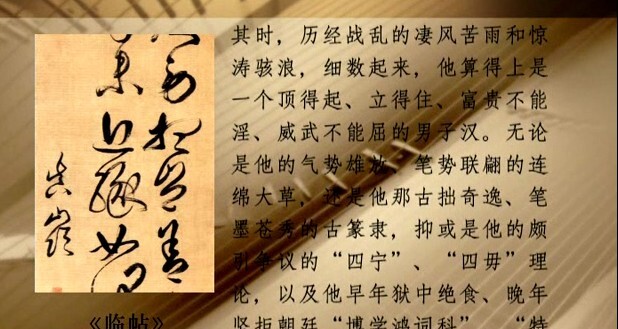 其时，历经战乱的凄风苦雨和惊
涛骇浪，细数起来，他算得上是
一个顶得起、立得住、富贵不能
淫、威武不能屈的男子汉。无论
是他的气势雄放、笔势联翩的连
绵大草，还是他那古拙奇逸、笔
墨苍秀的古篆隶，抑或是他的颇
引争议的“四宁”、“四毋”理
论，以及他早年狱中绝食、晚年
坚拒朝廷“博学鸿词科”、“特
《临帖》